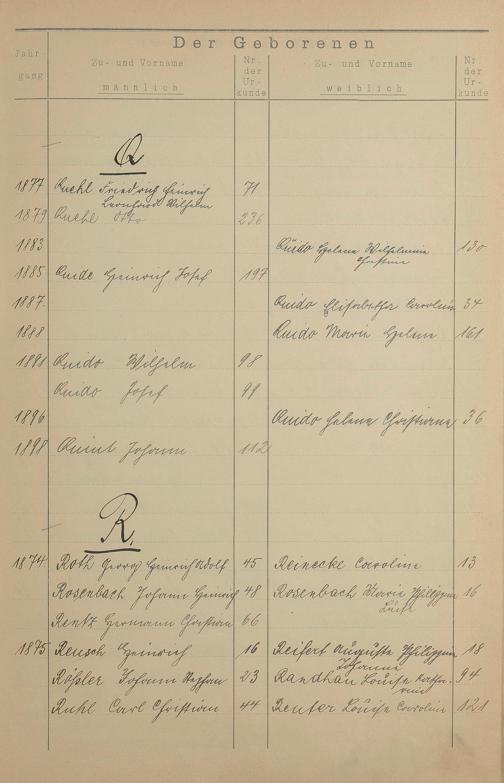 Der Geborenen
Jahr-
gang
Zu- und Vorname
männlich
Nr.
der
Ur-
kunde
Zu- und Vorname
weiblich
Nr.
der
Ur-
kunde
Q
1877 Quehl Friedrich Heinrich 71
Wilhelm
1879 Quehl Otto 236
1883 Quido Helene Wilhelmine 130
Christine
1885 Quide Heinrich Josef 197
1887. Quido Elisabetha Caroline 34
1888 Quido Marie Helene 161
1891 Quido Wilhelm 98
Quido Josef 99
1896 Quido Helena Christiane 36
1898 Quint Johann 112
R.
1874 Roth Georg Heinrich Adolf 45 Reinecke Caroline 13
Rosenbach Johann Heinrich 48 Rosenbach Marie Philippine 16
Luise
Rentz Hermann Christian 66
1875 Reusch Heinrich 16 Reifert Auguste Philippine 18
Johanne
Rößler Johann Stephan 23 Randhau Louise Katha- 94
rine
Ruhl Carl Christian 44 Reuter Louise Caroline 121